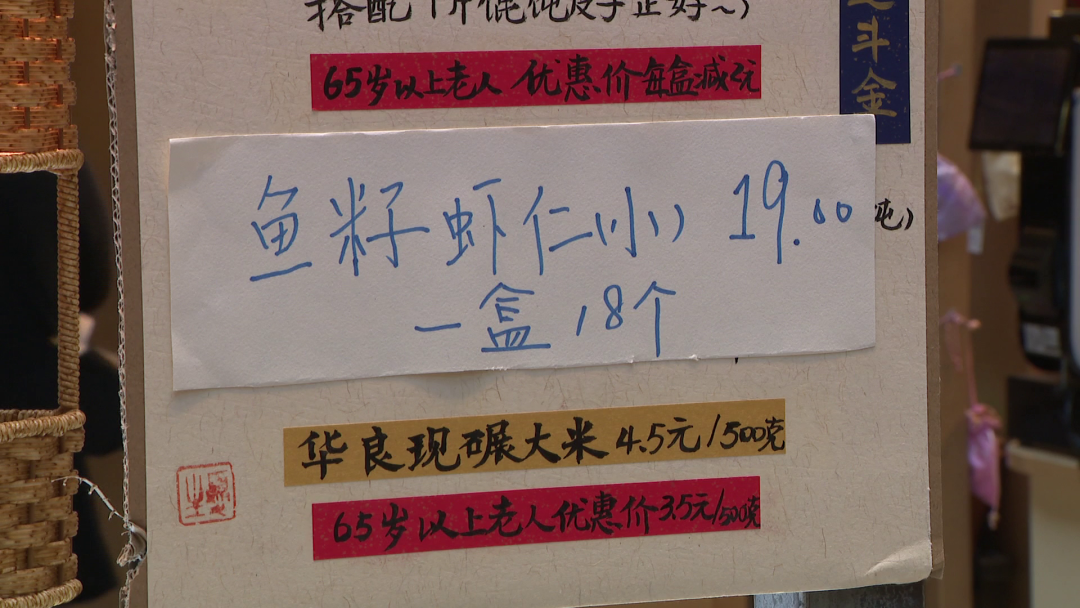 搭配1斤馄饨皮子正好~)
斗金
65岁以上老人优惠价每盒减2元
鱼籽虾仁(小) 19.00
饨)
一盒18个
华良现碾大米4.5元/500克
65岁以上老人优惠价3.5元/500克